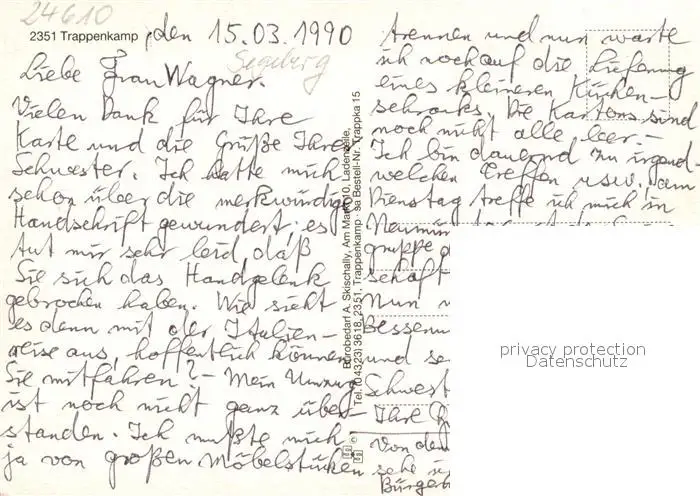 24610
2351 Trappenkamp, den 15.03.1990
Segeberg
Liebe Frau Wagner.
Vielen Dank für Ihre
Karte und die Grüße Ihrer
Schwester. Ich hatte mich
schon über die merkwürdige
Handschrift gewundert; es
tut mir sehr leid, daß
Sie sich das Handgelenk
gebrochen haben. Wie sieht
es denn mit der Italien-
reise aus, hoffentlich können
Sie mitfahren? - Mein Umzug
ist noch nicht ganz über-
standen. Ich mußte mich
ja von großen Möbelstücken
Bürobedarf A. Skischally, Am Markt 10, Ladenzeile,
Tel. (04323) 3618, 2351, Trappenkamp · sa Bestell-Nr. Trappka 15
trennen und nun warte
ich noch auf die Lieferung
eines kleineren Küchen-
schranks. Die Kartons sind
noch nicht alle leer. -
Ich bin dauernd zu irgend-
welchen Treffen usw. am
Dienstag treffe ich mich in
gruppe
schaft
Nun
und se
Schwest
Ihre
Von den
sehe
Bürgerb
privacy protection
Datenschutz